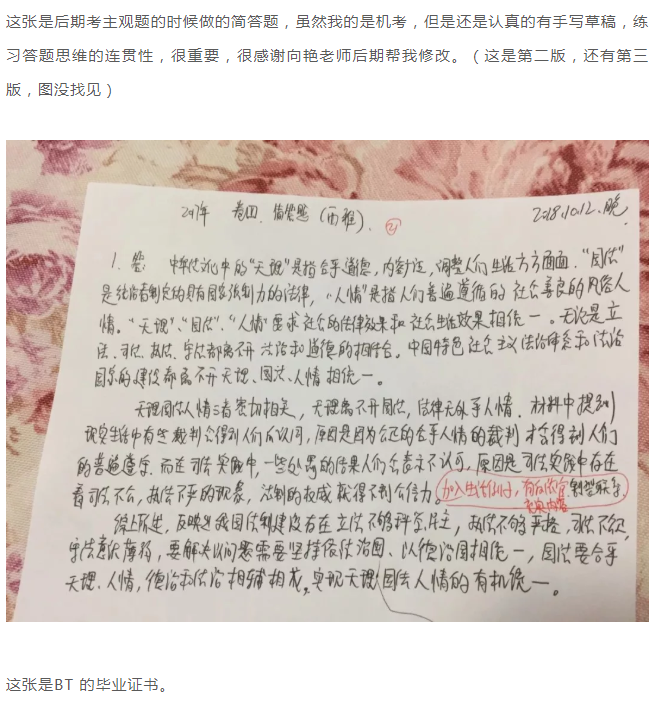 这张是后期考主观题的时候做的简答题，虽然我的是机考，但是还是认真的有手写草稿，练
习答题思维的连贯性，很重要，很感谢向艳老师后期帮我修改。（这是第二版，还有第三
版，图没找见）
2017年 卷四 简答题（西雅）. ② 2018.10.12.晚
1. 答: 中华传统文化中的“天理”是指合乎道德，内容广泛，调整人们生活方方面面．“国法”
是统治者制定的具有国家强制力的法律，“人情”是指人们普遍遵循的社会善良的风俗人
情。“天理”、“国法”、“人情”要求社会的法律效果和社会生活效果相统一。无论是立
法、司法、执法、守法都离不开法治和道德的相结合。中国特色社会主义法治体系和法治
国家的建设都离不开天理、国法、人情相统一。
天理国法人情三者密切相关，天理离不开国法，法律无外乎人情．材料中提到
现实生活中有些裁判会得到人们的认可，原因是因为公正的合乎人情的裁判才会得到人们
的普遍遵守．而在司法实践中，一些处罚的结果人们会表示不认可，原因是司法实践中存在
着司法不公，执法不严的现象，法制的权威获得不到公信力．
综上所述，反映出我国法制建设存在立法不够科学、民主，执法不够严格，司法不公，
守法意识薄弱，要解决以问题需要坚持依法治国、以德治国相统一，国法要合乎
天理、人情，德治和法治相辅相成，实现天理国法人情的有机统一。
这张是BT 的毕业证书。